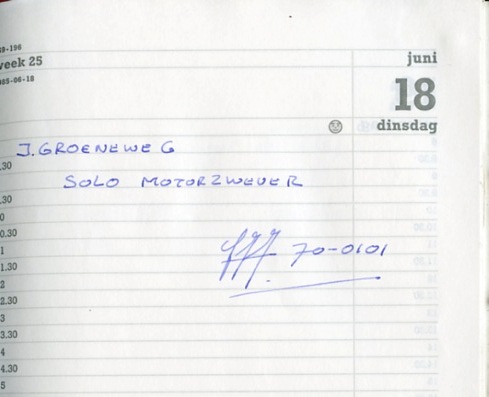 69-196
week 25
juni
985-06-18
18
dinsdag
J. GROENEWEG
.30
SOLO MOTORZWEVER
.30
0
0.30
70-0101
1
1.30
2
2.30
3
3.30
4
4.30
5